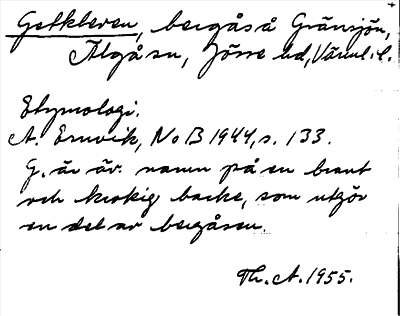 Getkleven, bergås å Gränsjön,
Älgåsn, Jösse hd, Värml. l.
Etymologi.
A. Ernvik, NoB 1944, s. 133.
G. är äv. namn på en brant
och krokig backe, som utgör
en del av bergåsen.
Th. A. 1955.